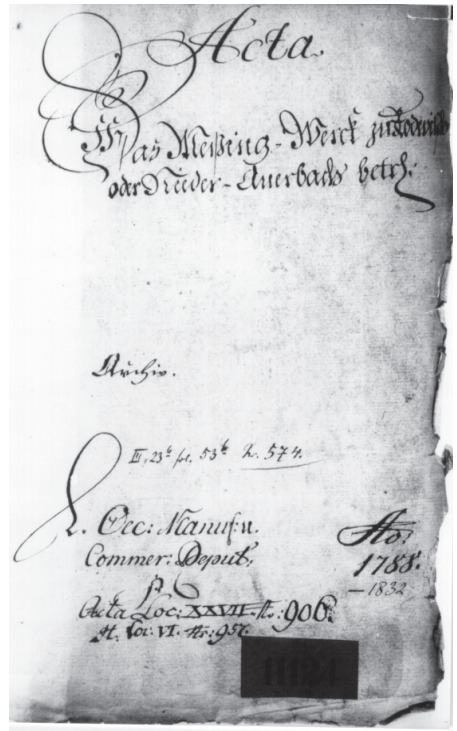 Acta.
Das Meßing-Werck zu Rodewisch
oder Nieder-Auerbach betrf:
Archiv.
III, 23b fol. 53b No. 574.
L. Oec: Manuf: u.
Commer: Deput:
Ao:
1788.
— 1832
Acta Loc: XXVII. No: 906.
A. Loc: VI. Nr: 957.
11124